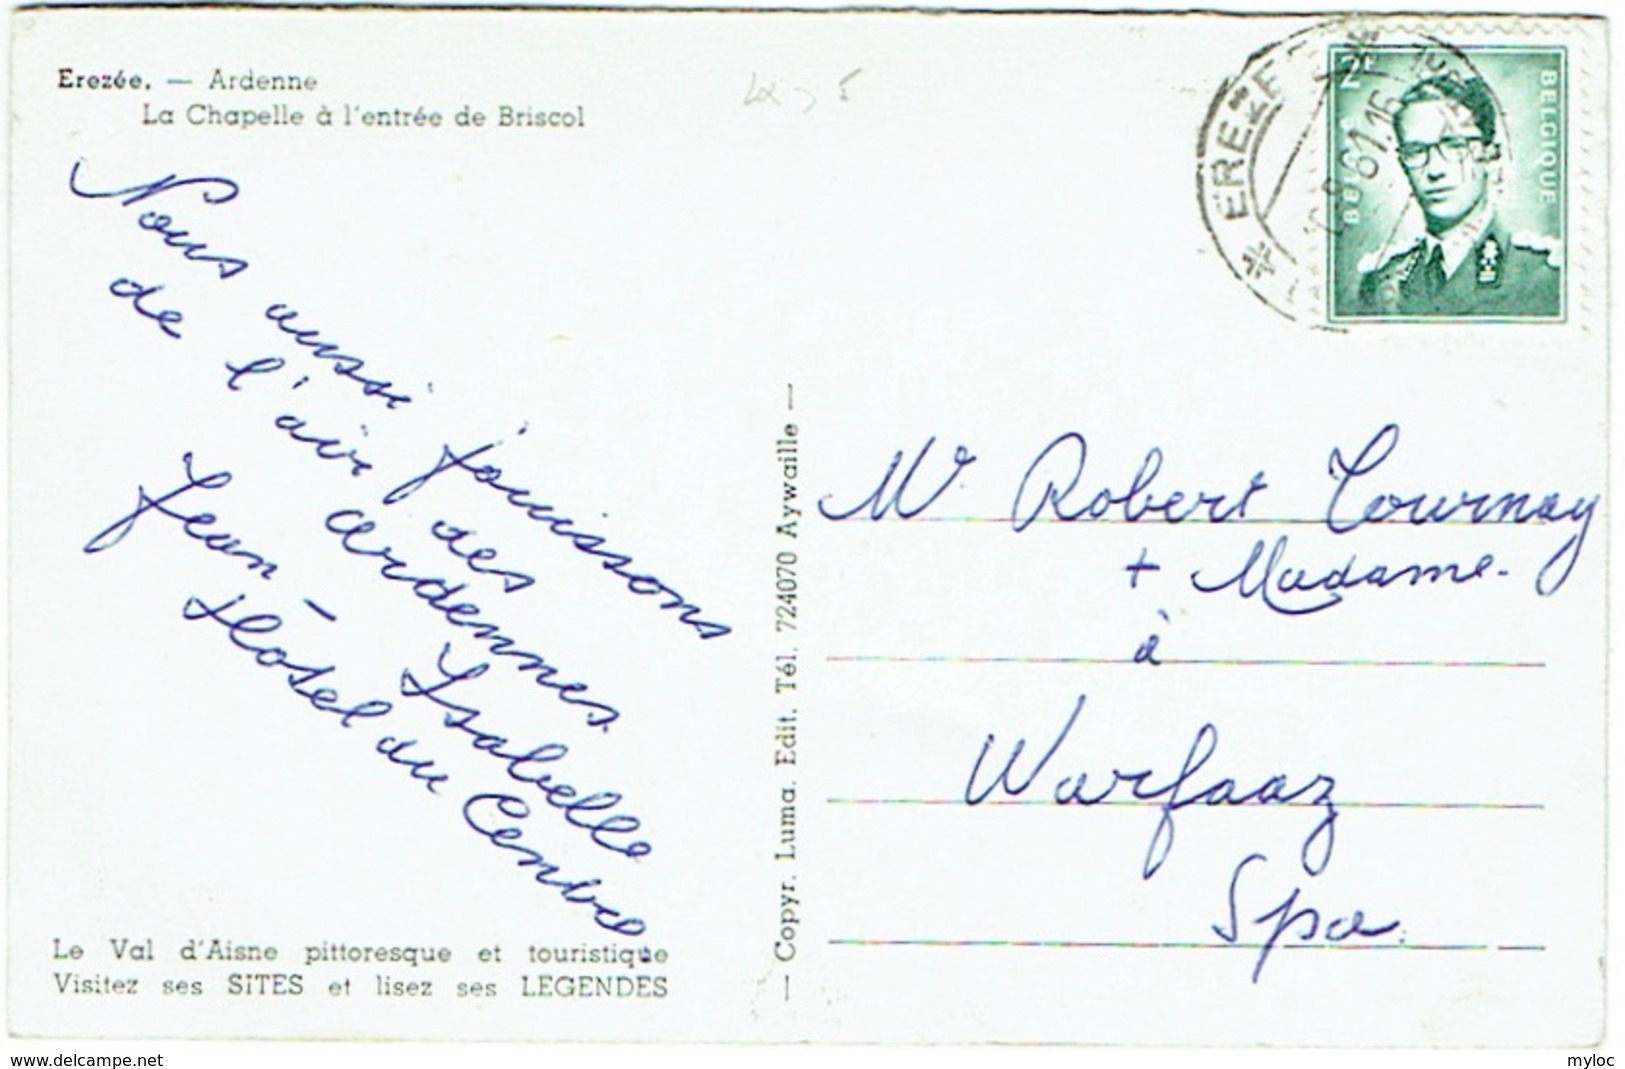 Erezée. — Ardenne
La Chapelle à l'entrée de Briscol
Nous aussi jouissons
de l'air des
ardennes.
Jean - Isabelle
Hôtel du Centre
Le Val d'Aisne pittoresque et touristique
Visitez ses SITES et lisez ses LEGENDES
— Copyr. Luma. Edit. Tél. 724070 Aywaille —
EREZEE
61
2F
BELGIQUE
Mr. Robert Tournay
+ Madame.
à
Warfaaz
Spa.
www.delcampe.net
myloc